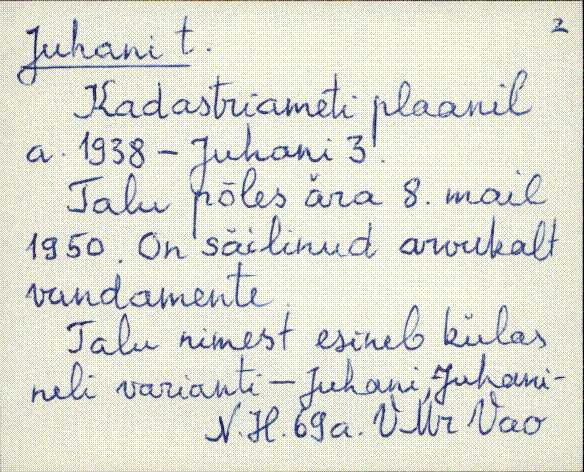 2
Juhani t.
Kadastriameti plaanil
a. 1938 – Juhani 3.
Talu põles ära 8. mail
1950. On säilinud arvukalt
vundamente.
Talu nimest esineb külas
neli varianti – Juhani, Juhani-
N.H. 69a. VMr Vao